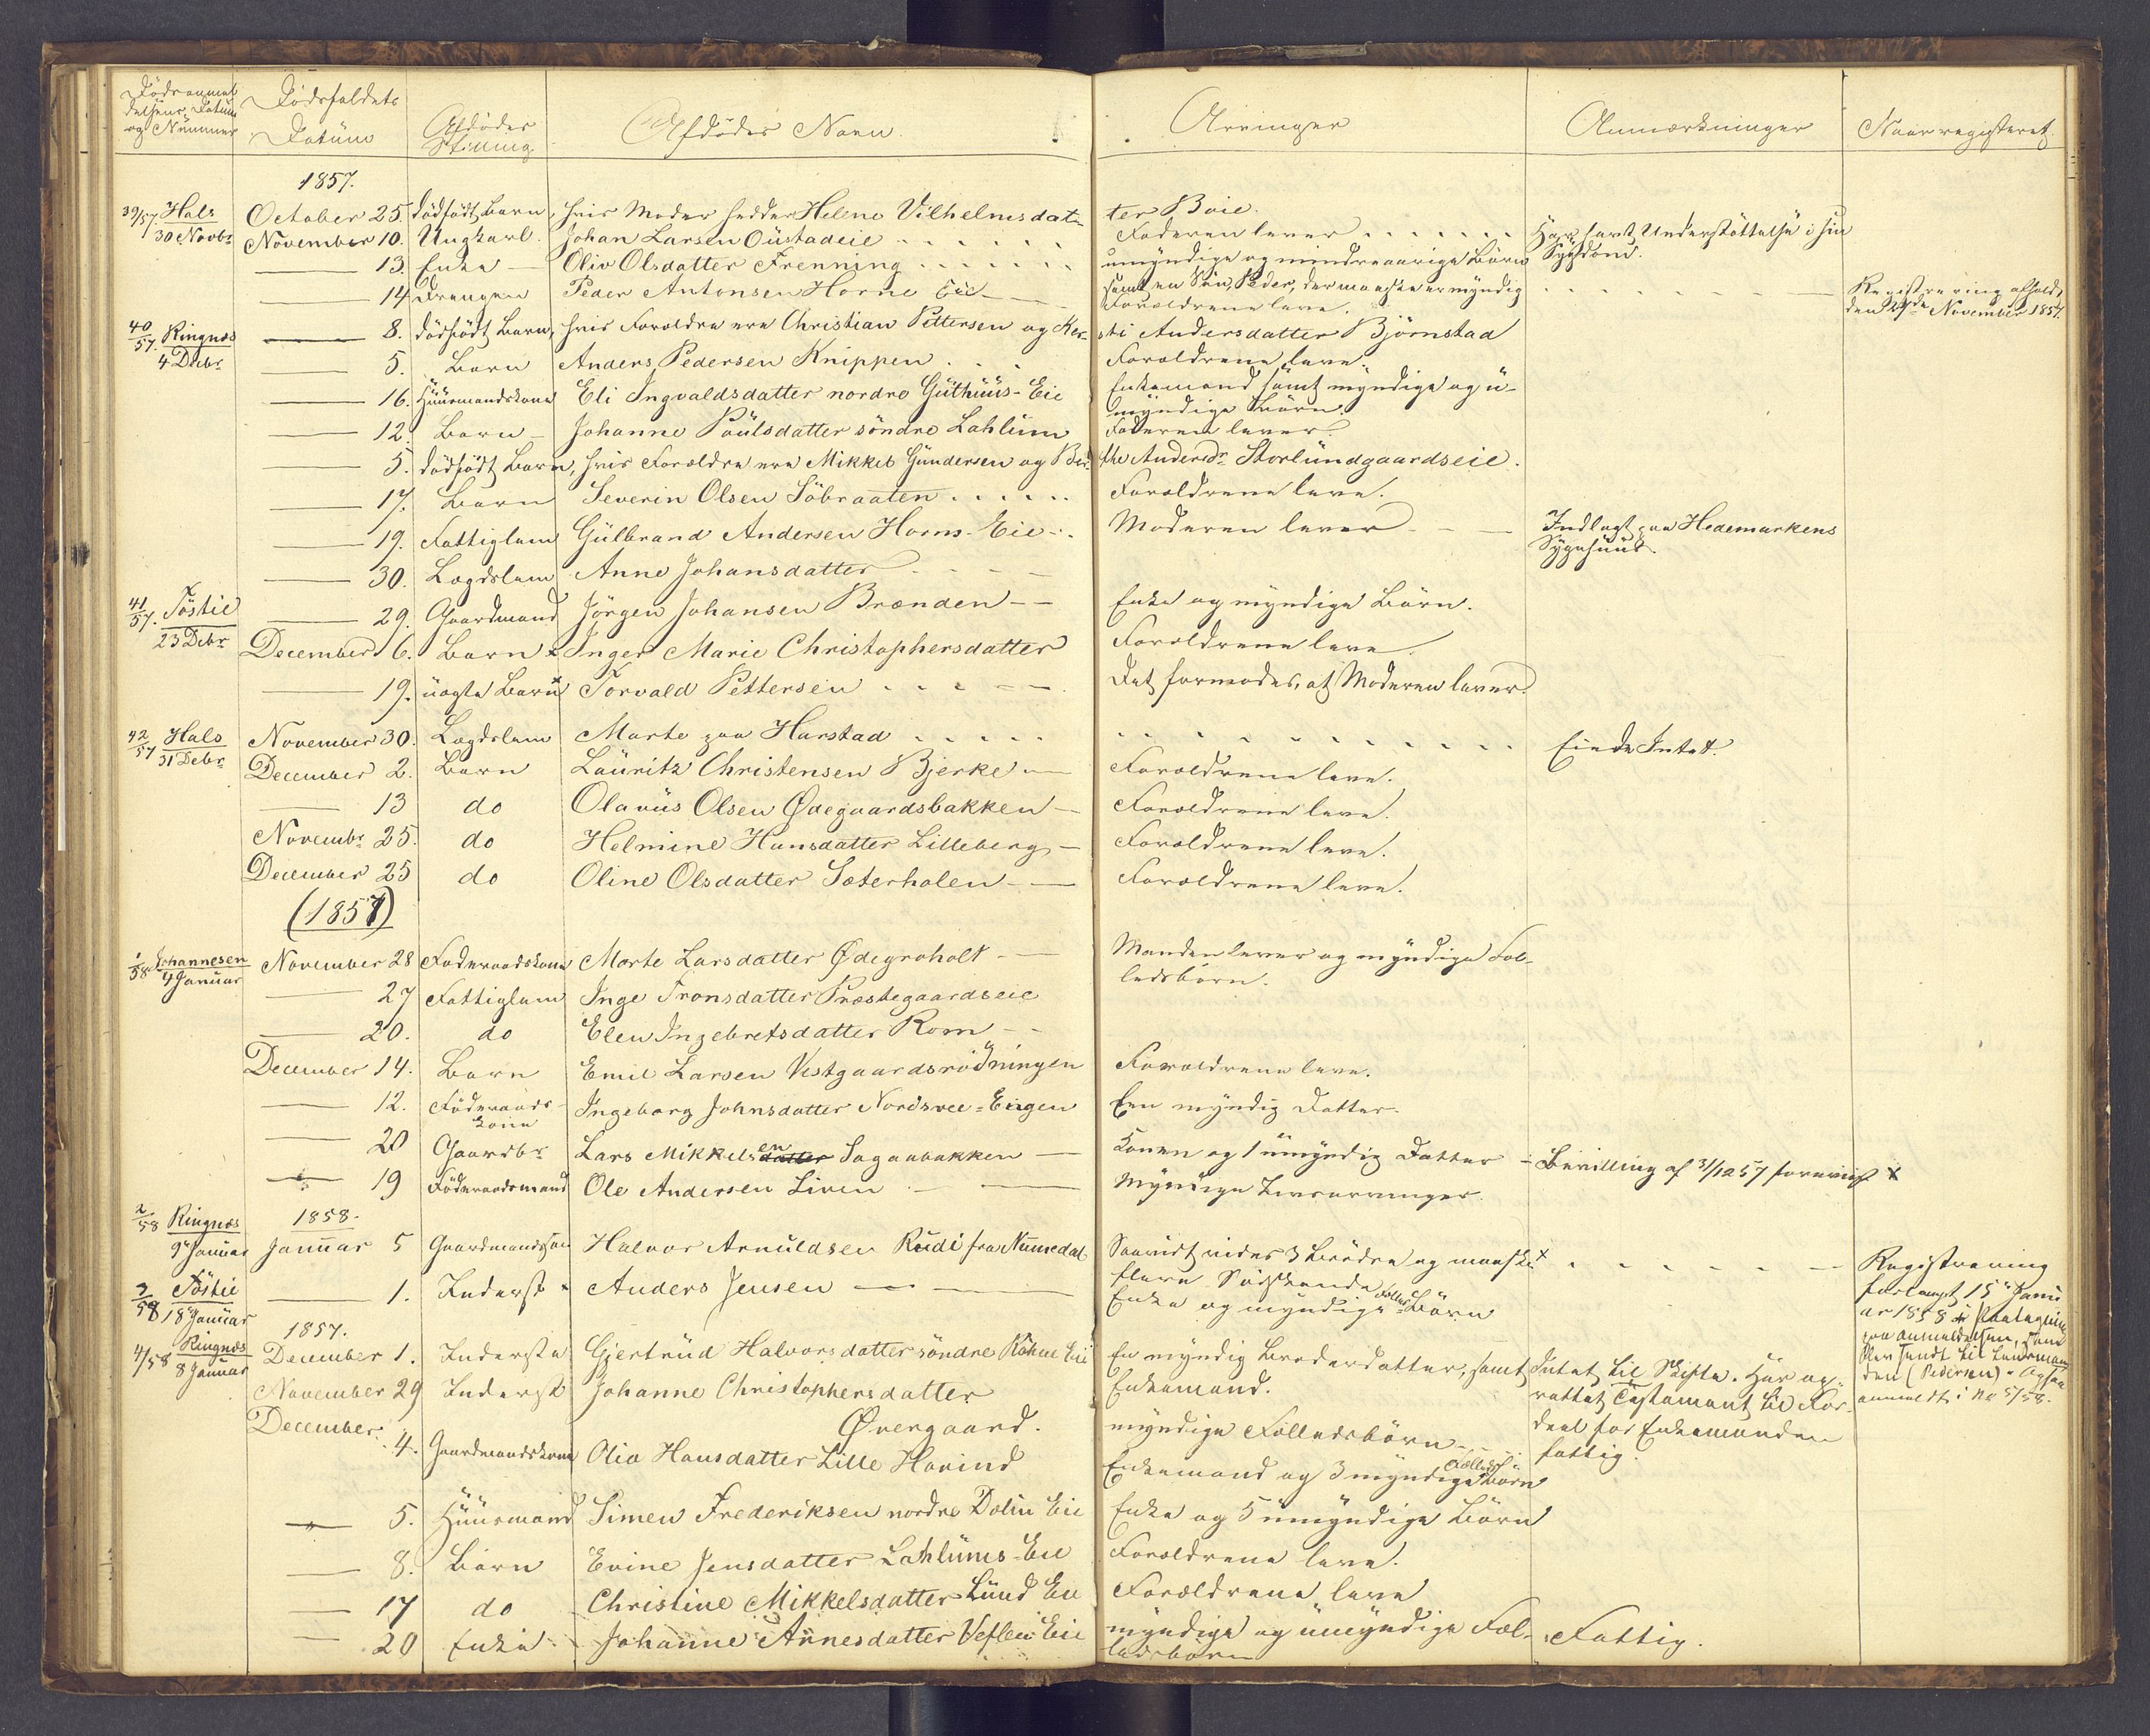 Dödsanmel
delsens Datum
og Nummer
Dödsfaldets
Datum
Afdödes
Stilling
Afdödes Navn.
Arvinger
Anmærkninger
Naar registeret
1857.
39/57 Hals
30 Novbr
October 25. dödfödt Barn, hvis Moder hedder Helene Vilhelmsdat- ter Boie.
November 10. Ungkarl. Johan Larsen Oustadeie Faderen lever Har havt Understöttelse i sin
Sygdom.
13. Enke Oliv Olsdatter Frenning umyndige og mindreaarige Börn
samt en Sön, Peder, der maaske er myndig
14 Drengen Peder Antonsen Horne Eie Forældrene leve. Registrering afholdt
den 24de November 1857.
40/57. Ringnæs
4 Decbr
8. dödfödt Barn, hvis Forældre ere Christian Pettersen og Ker- sti Andersdatter Björnstad
5. Barn Anders Pedersen Knippen Forældrene leve.
16. Huusmandskone Eli Ingvaldsdatter nordre Guthuus-Eie Enkemand samt myndige og u-
myndige Börn.
12. Barn Johanne Poulsdatter söndre Lahlum Faderen lever.
5. dödfödt Barn, hvis Forældre ere Mikkel Gundersen og Ber- the Andersdr Storlundgaardseie.
17. Barn Severin Olsen Söbraaten Forældrene leve.
19. Fattiglem Gulbrand Andersen Horns-Eie Moderen lever Indlagt paa Hedemarkens
Sygehuus.
30. Lægdslem Anne Johansdatter
41/57. Töstie
23 Debr
29. Gaardmand Jörgen Johansen Brænden Enke og myndige Börn.
December 6. Barn Inger Marie Christophersdatter Forældrene leve.
19. uægte Barn Torvald Pettersen Det formodes, at Moderen lever.
42/57 Hals
31 Debr
November 30. Lægdslem Marte paa Harstad Eiede Intet.
December 2. Barn Lauritz Christensen Bjerke Forældrene leve.
13 do Olavus Olsen Ødegaardsbakken Forældrene leve.
Novembr 25. do Helmine Hansdatter Lilleberg Forældrene leve.
December 25 do Oline Olsdatter Sæterhalen Forældrene leve.
(1857)
1/58 Johannesen
4 Januar
November 28 Föderaadskone Marte Larsdatter Ødegroholt Manden lever og myndige Fæl-
ledsbörn.
27 Fattiglem Inge Tronsdatter Præstegaardseie
20. do Elen Ingebretsdatter Rom
December 14. Barn Emil Larsen Vestgaardsrödningen Forældrene leve.
12. Föderaads-
kone Ingeborg Johnsdatter Nordsvee-Eugen Een myndig Datter.
20 Gaardbr Lars Mikkelsen datter Sagaabakken Konen og 1 umyndig Datter Bevilling af 31/12 57 foreviist x
19 Föderaadsmand Ole Andersen Lien Myndige Livsarvinger.
2/58 Ringnæs
9 Januar
1858.
Januar 5 Gaardmandssön Halvor Arnuldsen Rudi fra Numedal Saavidt vides 3 Brödre og maaske x
flere Södskende Registrering
foretaget 15 Janu
ar 1858
3/58 Töstie
18 Januar
1. Inderst Anders Jensen Enke og myndige Fælles-Börn
paa Anmeldelsen, som
blev sendt til Lensman
den (Pedersen). Ogsaa
anmeldt i No 5/58.
4/58 Ringnæs
8 Januar
1857.
December 1. Inderste Gjertrud Halvorsdatter söndre Kohne Eie En myndig Broderdatter, samt
Enkemand. Intet til Skifte. Har op-
rettet Testament til For-
deel for Enkemanden
November 29 Inderst Johanne Christophersdatter
Øvergaard. myndige Fælledsbörn fattig.
December 4. Gaardmandskone Olia Hansdatter Lille Hovind Enkemand og 3 myndige Fælleds Börn
5. Huusmand Simen Frederiksen nordre Dælin Eie Enke og 5 umyndige Börn
8. Barn Evine Jensdatter Lahlums-Eie Forældrene leve.
17 do Christine Mikkelsdatter Lund Eie Forældrene leve
20 Enke Johanne Arnesdatter Veflen Eie myndige og umyndige Fæl-
ledsbörn Fattig.